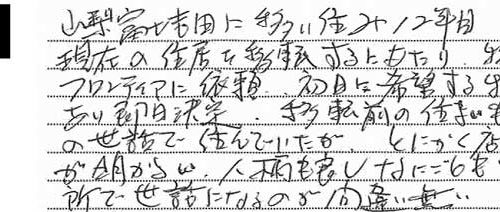 山梨富士吉田に移り住み12年目
現在の住居を移転するにあたり
フロンティアに依頼。初日に希望する
あり即日決定。移転前の住まいも
の世話で住んでいたが、とにかく店
が明かるい。人柄も良しなにごとも
所で世話になるのが間違い無い